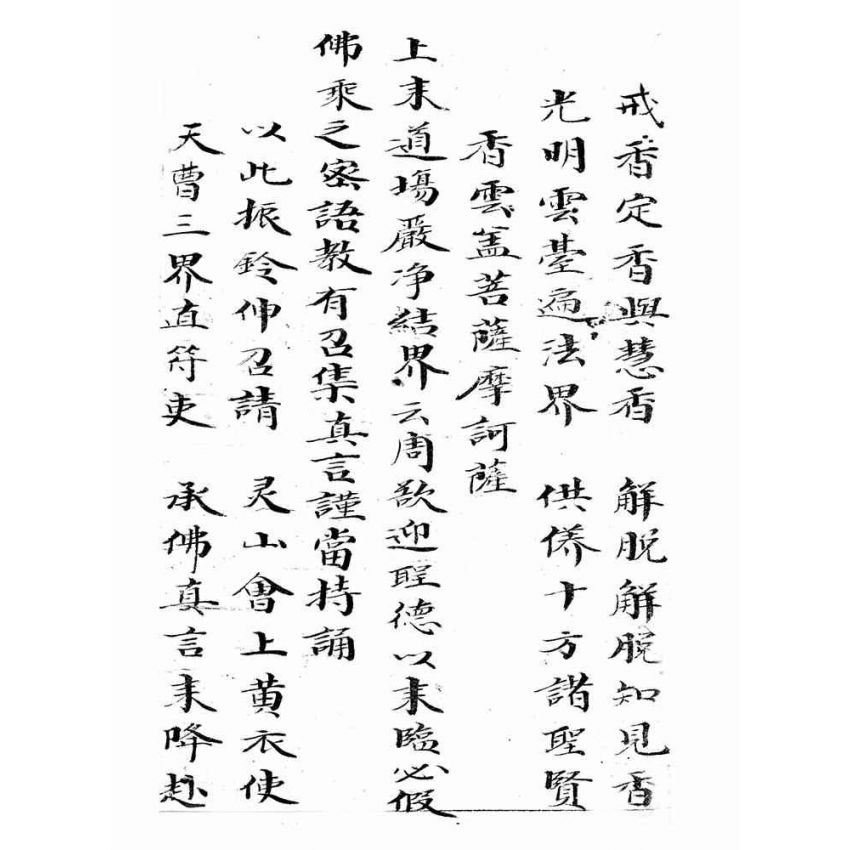 戒香定香與慧香 解脫解脫知見香
光明雲臺遍法界 供侨十方諸聖賢
香雲盖菩薩摩訶薩
上来道場嚴净結界云周欲迎聖德以来臨必假
佛乘之密語教有召集真言謹當持誦
以此振鈴伸召請 灵山會上黄衣使
天曹三界直符吏 承佛真言来降赴